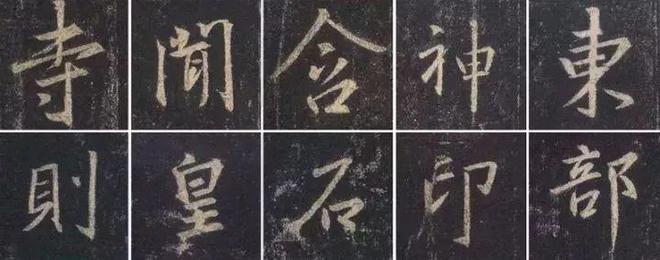 寺聞含神東
則皇石印部